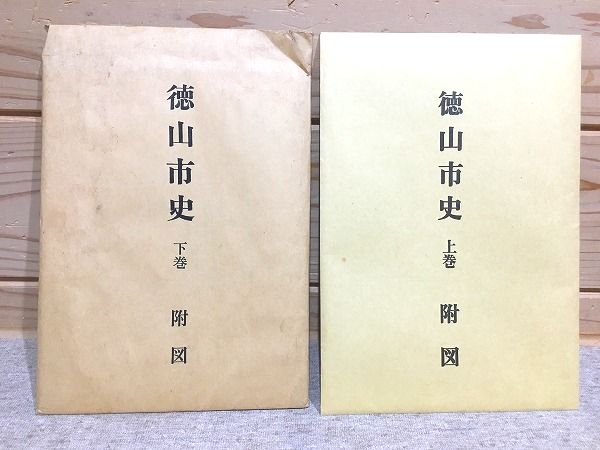 徳山市史
下巻
附図
徳山市史
上巻
附図